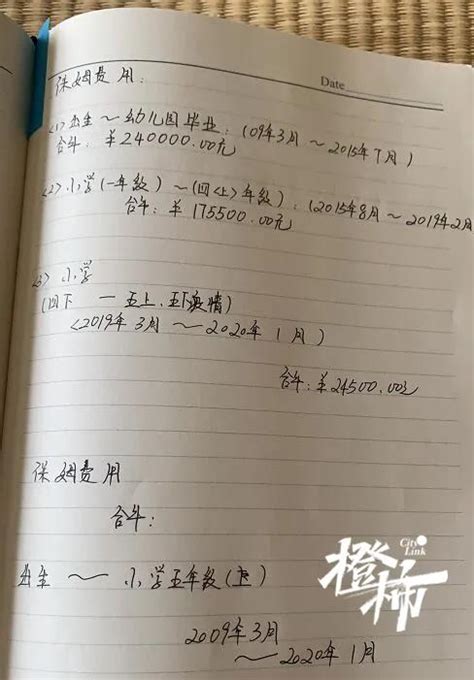 Date
保姆费用:
<1>出生～幼儿园毕业:(09年3月～2015年7月)
合计:¥240000.00元
<2>小学(一年级)～(四<上>年级):(2015年8月～2019年2月
合计:¥175500.00元
<3>小学
(四下 — 五上、五下疫情)
<2019年3月～2020年1月)
合计:¥24500.00元
保姆费用
合计:
出生～小学五年级(上)
2009年3月
～2020年1月
City Link
橙柿